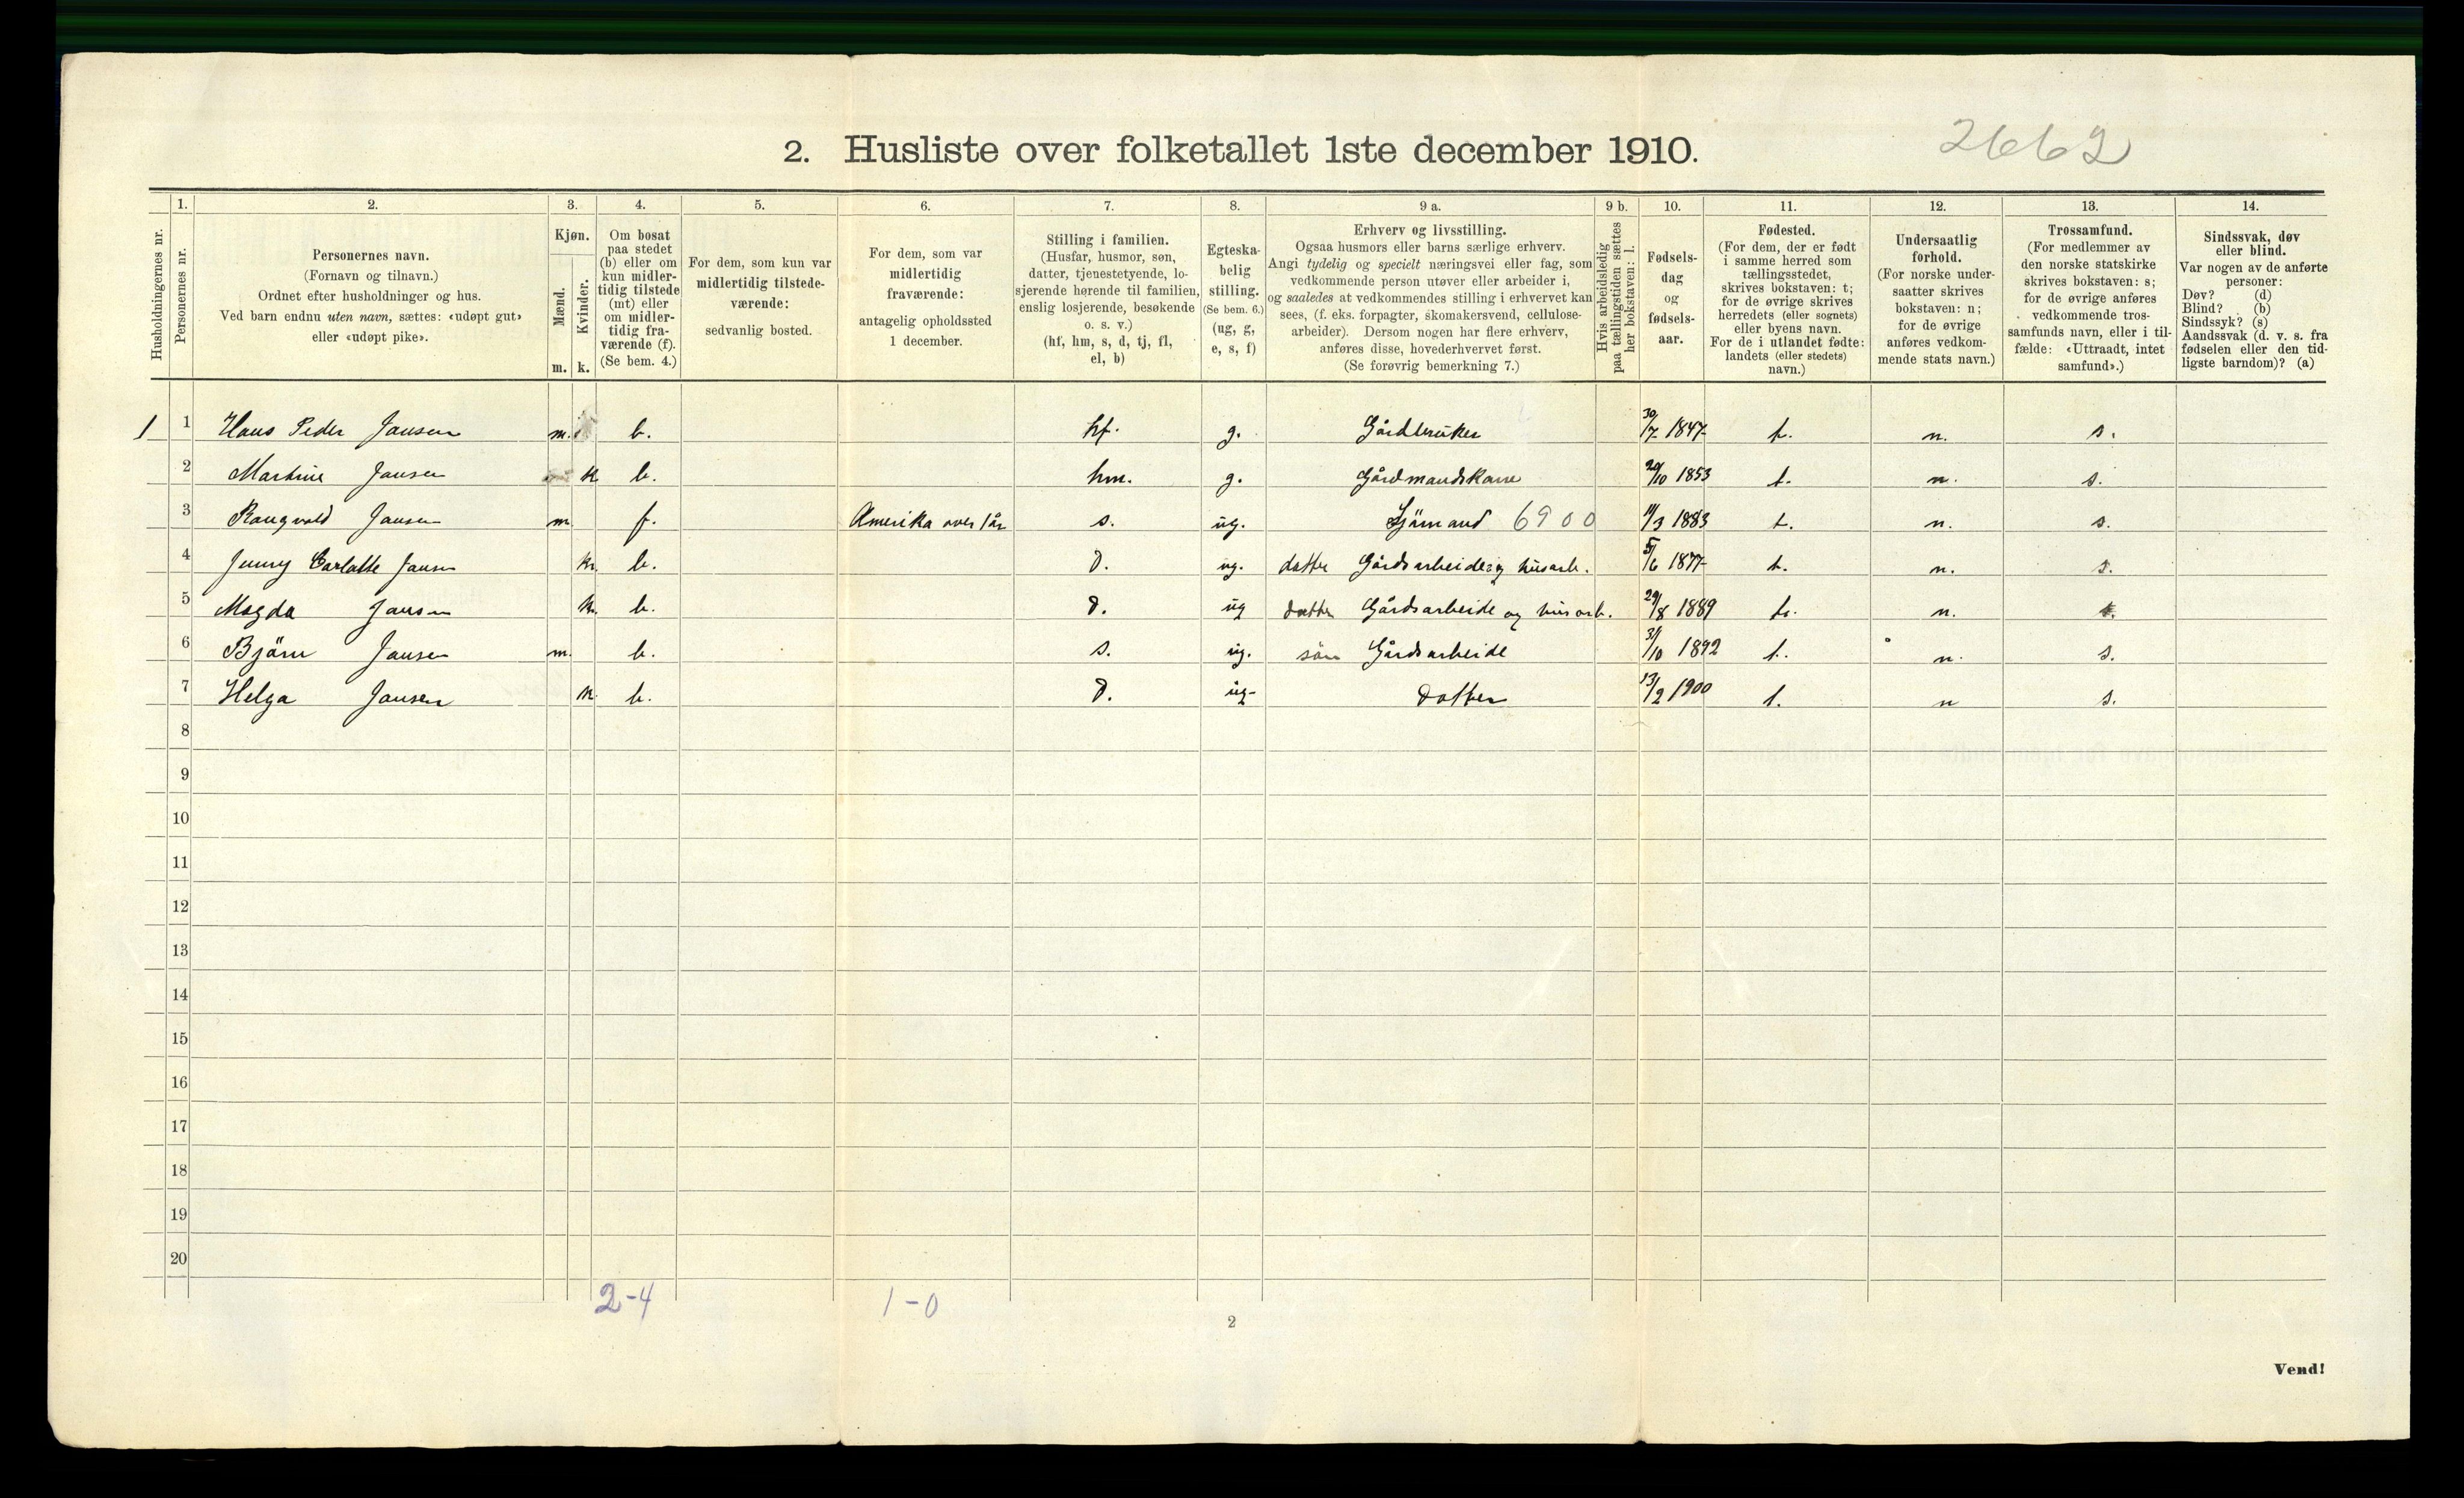 2662
2. Husliste over folketallet 1ste december 1910.
1. 2. 3. 4. 5. 6. 7. 8. 9 a. 9 b. 10. 11. 12. 13. 14.
Husholdningernes nr.
Personernes nr.
Personernes navn.
(Fornavn og tilnavn.)
Ordnet efter husholdninger og hus.
Ved barn endnu uten navn, sættes: «udøpt gut»
eller «udøpt pike».
Kjøn.
Mænd.
Kvinder.
m. k.
Om bosat
paa stedet
(b) eller om
kun midler-
tidig tilstede
(mt) eller
om midler-
tidig fra-
værende (f).
(Se bem. 4.)
For dem, som kun var
midlertidig tilstede-
værende:
sedvanlig bosted.
For dem, som var
midlertidig
fraværende:
antagelig opholdssted
1 december.
Stilling i familien.
(Husfar, husmor, søn,
datter, tjenestetyende, lo-
sjerende hørende til familien,
enslig losjerende, besøkende
o. s. v.)
(hf, hm, s, d, tj, fl,
el, b)
Egteska-
belig
stilling.
(Se bem. 6.)
(ug, g,
e, s, f)
Erhverv og livsstilling.
Ogsaa husmors eller barns særlige erhverv.
Angi tydelig og specielt næringsvei eller fag, som
vedkommende person utøver eller arbeider i,
og saaledes at vedkommendes stilling i erhvervet kan
sees, (f. eks. forpagter, skomakersvend, cellulose-
arbeider). Dersom nogen har flere erhverv,
anføres disse, hovederhvervet først.
(Se forøvrig bemerkning 7.)
Hvis arbeidsledig
paa tællingstiden sættes
her bokstaven: l.
Fødsels-
dag
og
fødsels-
aar.
Fødested.
(For dem, der er født
i samme herred som
tællingsstedet,
skrives bokstaven: t;
for de øvrige skrives
herredets (eller sognets)
eller byens navn.
For de i utlandet fødte:
landets (eller stedets)
navn.)
Undersaatlig
forhold.
(For norske under-
saatter skrives
bokstaven: n;
for de øvrige
anføres vedkom-
mende stats navn.)
Trossamfund.
(For medlemmer av
den norske statskirke
skrives bokstaven: s;
for de øvrige anføres
vedkommende tros-
samfunds navn, eller i til-
fælde: «Uttraadt, intet
samfund».)
Sindssvak, døv
eller blind.
Var nogen av de anførte
personer:
Døv? (d)
Blind? (b)
Sindssyk? (s)
Aandssvak (d. v. s. fra
fødselen eller den tid-
ligste barndom)? (a)
1 1 Hans Peder Jansen m. b. hf. g. Gårdbruker 30/7 1847 t. n. s.
2 Martine Jansen k b. hm. g. Gårdmandskone 20/10 1853 t. n. s.
3 Rangvald Jansen m. f. Amerika over 1 år s. ug. Sjömand 6900 11/3 1883 t. n. s.
4 Jenny Carlotte Jansen k. b. d. ug. datter Gårdsarbeide og husarb. 5/6 1877 t. n. s.
5 Magda Jansen k. b. d. ug datter Gårdsarbeide og husarb. 29/8 1889 t. n. s.
6 Björn Jansen m. b. s. ug. sön Gårdsarbeide 31/10 1892 t. n. s.
7 Helga Jansen k. b. d. ug- Datter 13/2 1900 t. n s.
8
9
10
11
12
13
14
15
16
17
18
19
20
2-4 1-0
2
Vend!